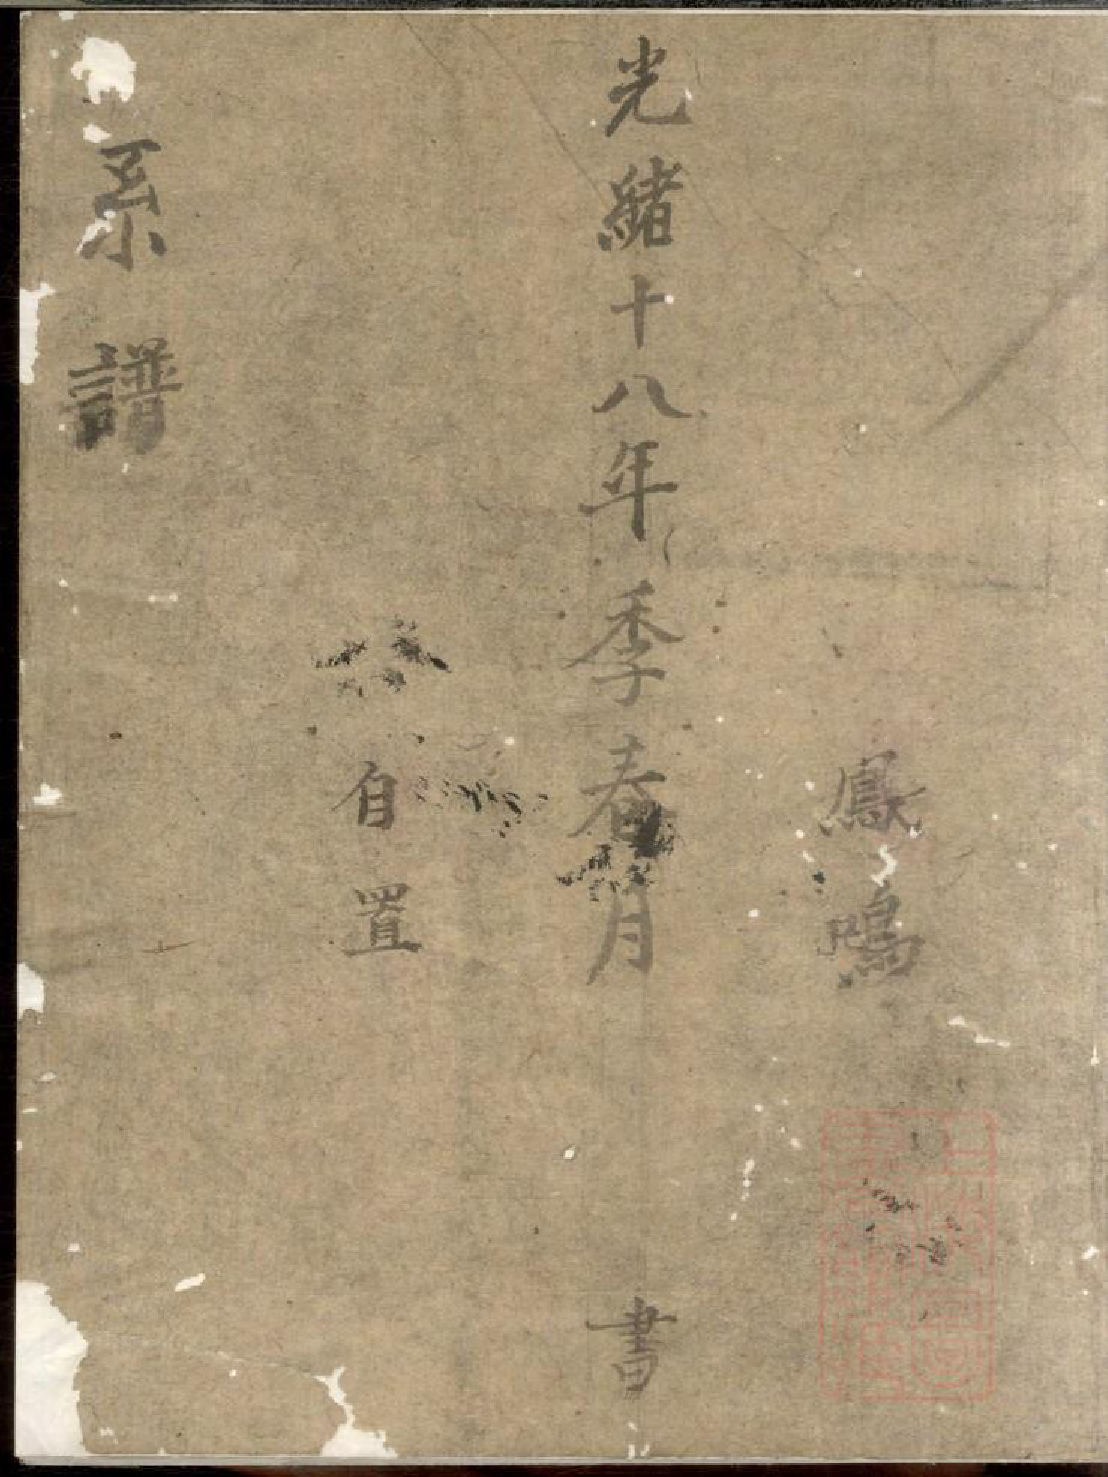 鳳鳴
光緒十八年季春月 書
自置
系譜